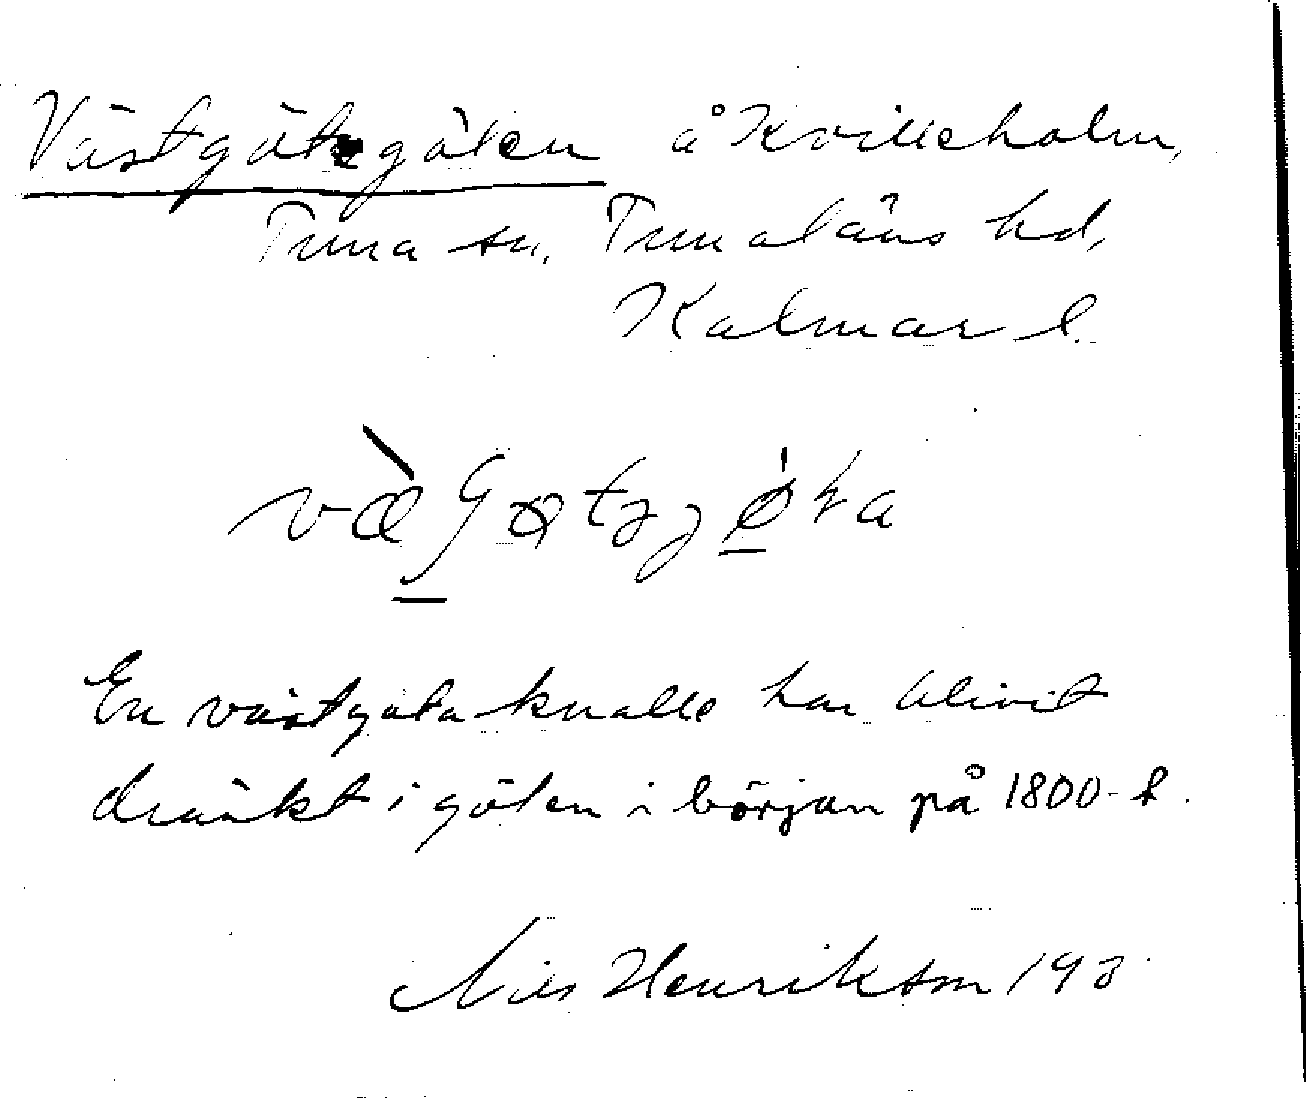 Västgötegölen å Kvilleholm,
Tuna sn, Tunaläns hd,
Kalmar l.
En västgötaknalle har blivit
dränkt i gölen i början på 1800-t.
Nils Henrikson 193